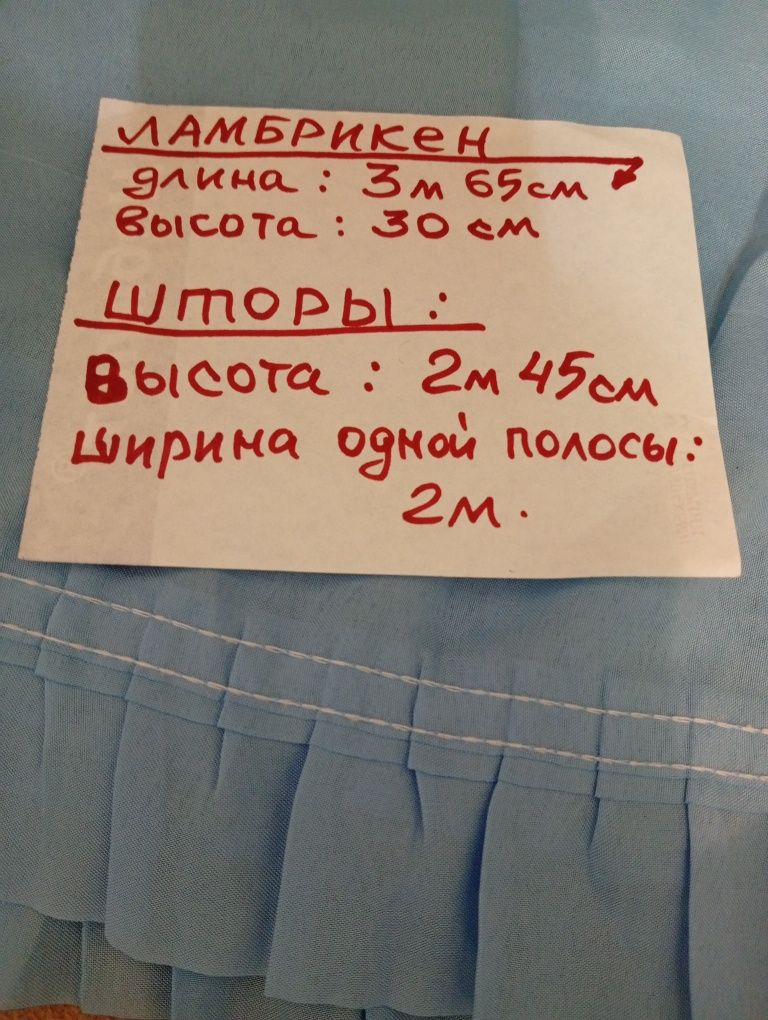 ЛАМБРИКЕН
длина: 3м 65см
высота: 30 см
ШТОРЫ:
Высота: 2м 45см
ширина одной полосы:
2м.